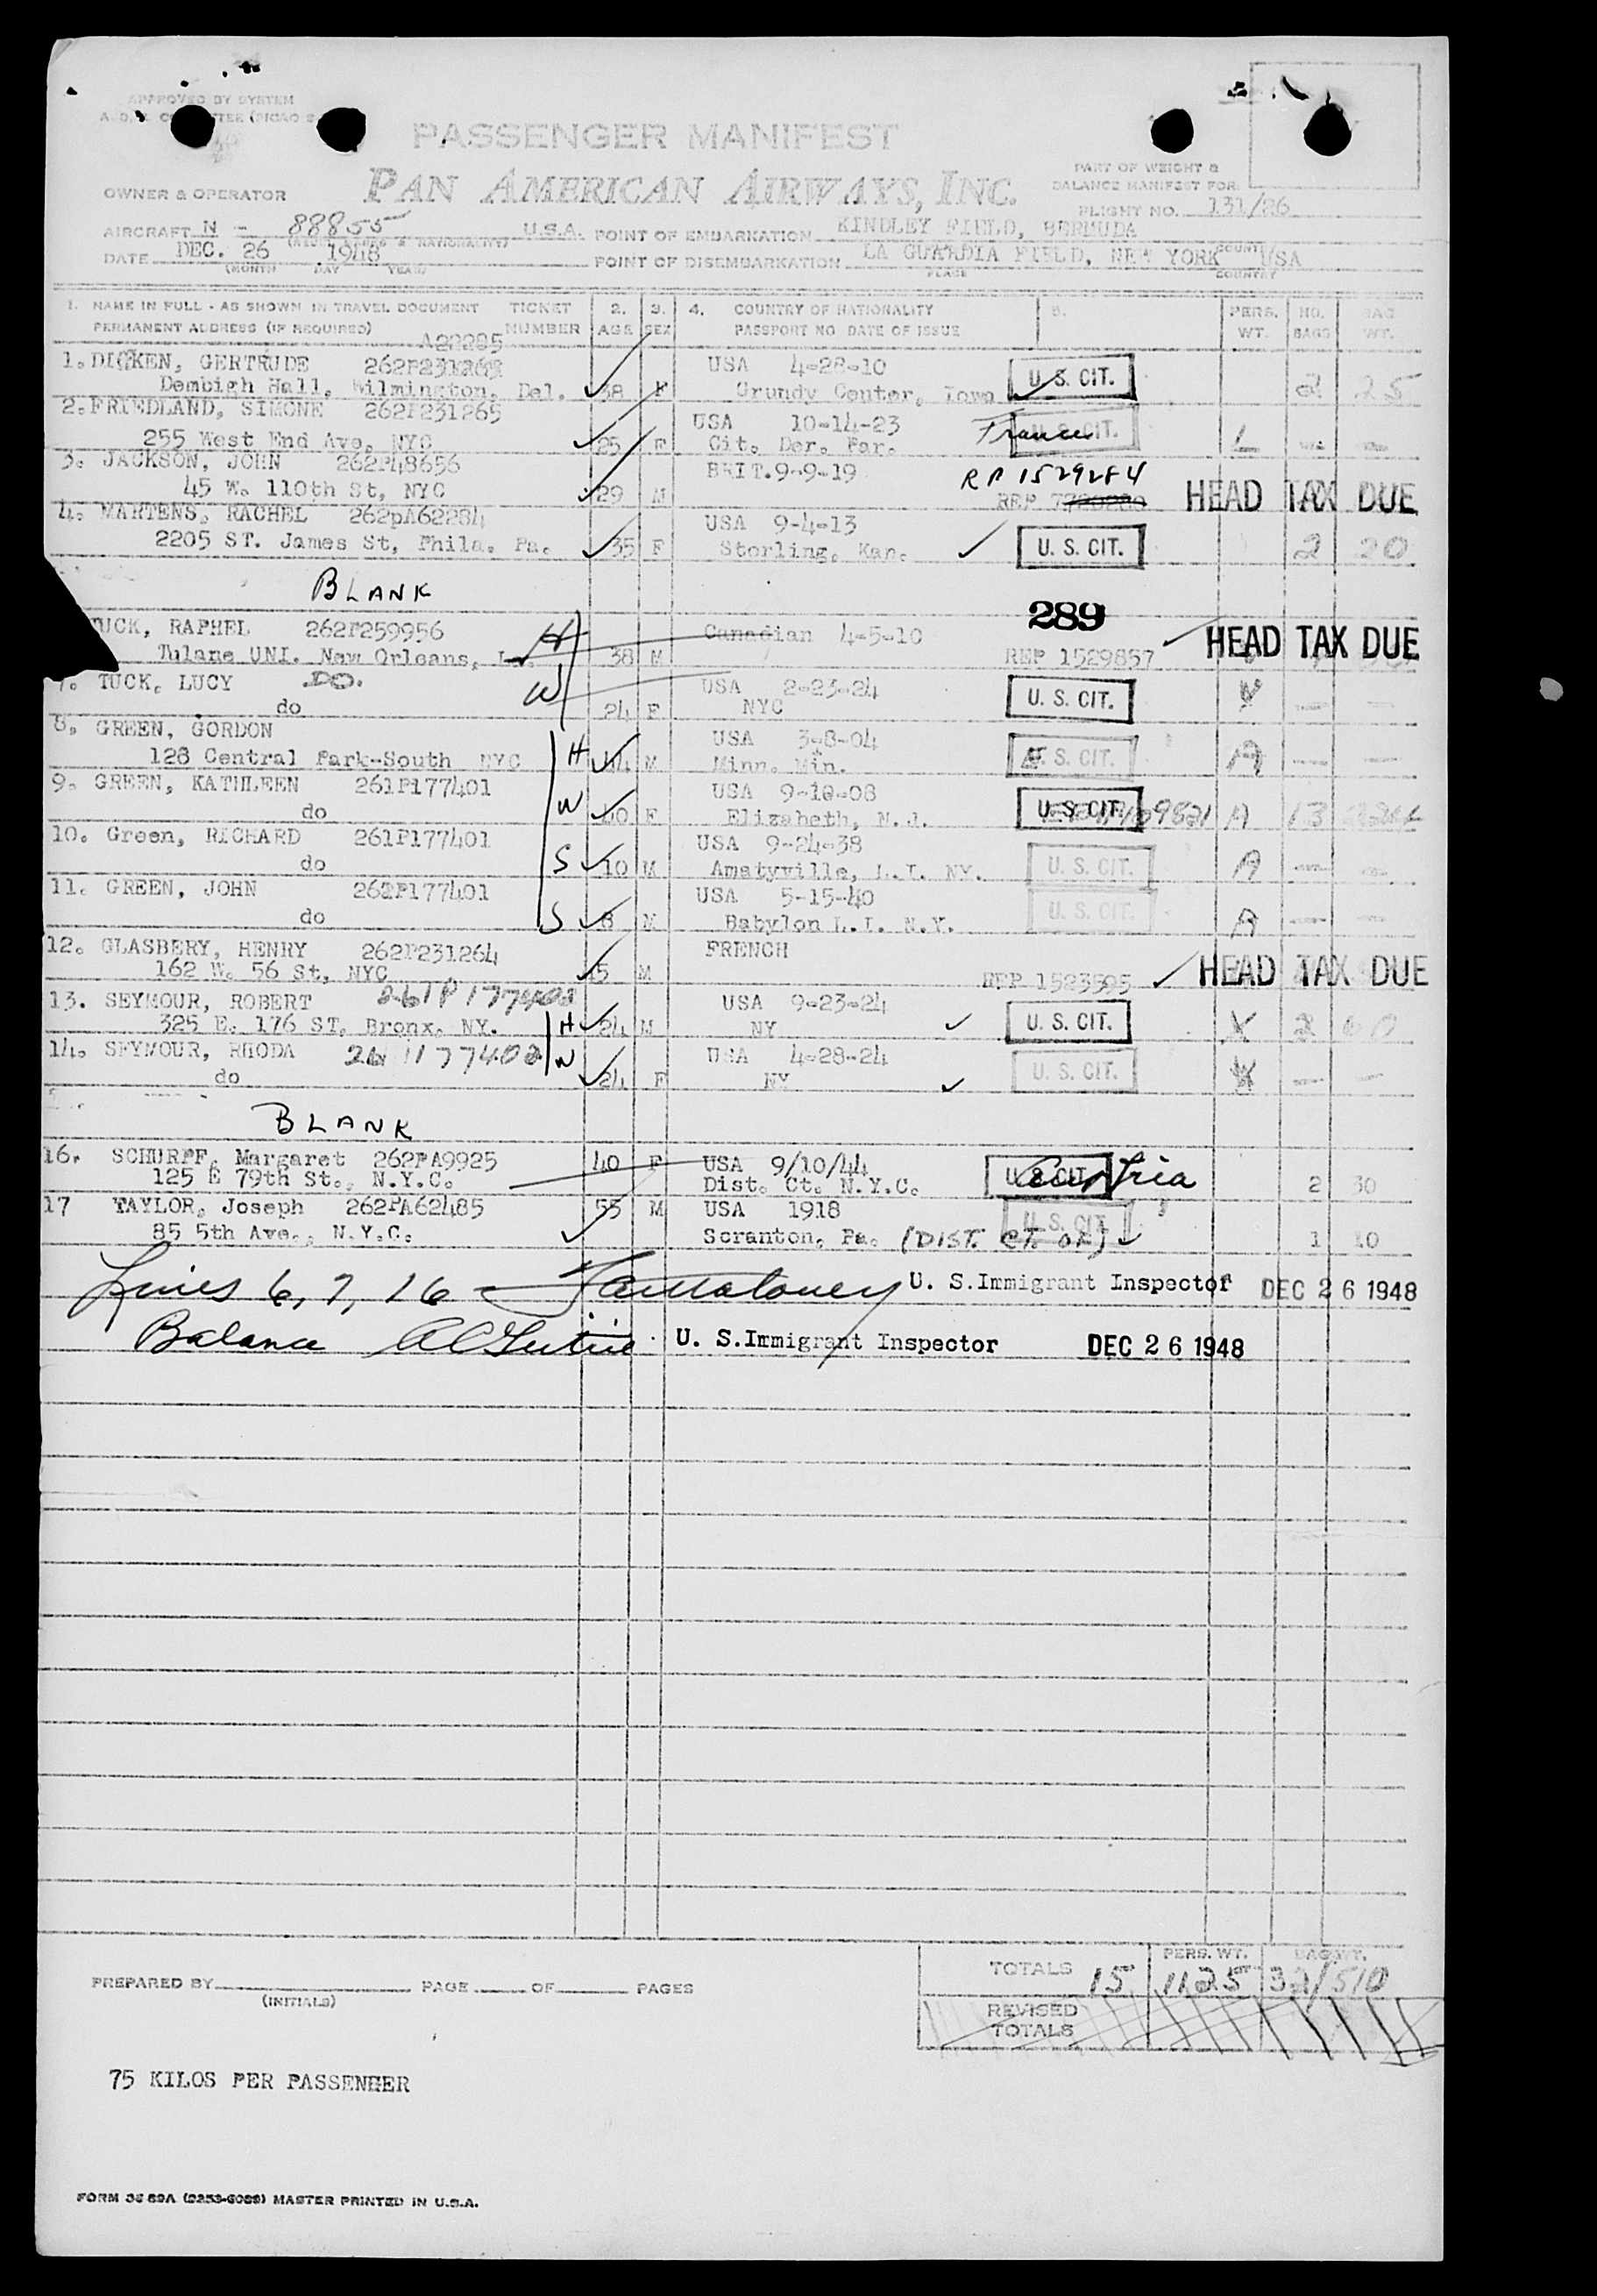 APPROVED BY SYSTEM
PASSENGER MANIFEST
PAN AMERICAN AIRWAYS, INC.
PART OF WEIGHT &
BALANCE MANIFEST FOR
OWNER & OPERATOR
FLIGHT NO. 131/26
AIRCRAFT N - 88855 U.S.A. POINT OF EMBARKATION KINDLEY FIELD, BERMUDA
DATE DEC. 26 1948 POINT OF DISEMBARKATION LA GUARDIA FIELD, NEW YORK USA
(MONTH DAY YEAR) PLACE COUNTRY
1. NAME IN FULL - AS SHOWN IN TRAVEL DOCUMENT TICKET 2. 3. 4. COUNTRY OF NATIONALITY 5. PERS. NO. BAG
PERMANENT ADDRESS (IF REQUIRED) NUMBER AGE SEX PASSPORT NO DATE OF ISSUE WT. BAGS WT.
A22285
1. DICKEN, GERTRUDE USA 4-28-10
Dembigh Hall, Wilmington, Del. 38 F Grundy Center, Iowa U.S. CIT. 2 25
2. FRIEDLAND, SIMONE 262P231265 USA 10-14-23
255 West End Ave, NYC 25 F Cit. Der. Par. France U.S. CIT. L
3. JACKSON, JOHN 262P48656 BRIT. 9-9-19 RP 1529284
45 W. 110th St, NYC 29 M REP HEAD TAX DUE
4. MARTENS, RACHEL 262pA62284 USA 9-4-13
2205 ST. James St, Phila. Pa. 35 F Sterling, Kan. U. S. CIT. 2 20
BLANK
289
TUCK, RAPHEL 262P259956 H Canadian 4-5-10 HEAD TAX DUE
Tulane UNI. New Orleans, 38 M REP 1529857
7. TUCK, LUCY DO. W USA 2-23-24 U. S. CIT.
do 24 F NYC
8. GREEN, GORDON USA 3-8-04
128 Central Park-South NYC H 44 M Minn. Min. U. S. CIT. A
9. GREEN, KATHLEEN 261P177401 USA 9-10-08
do W 40 F Elizabeth, N.J. U.S. CIT. A 13
10. Green, RICHARD 261P177401 USA 9-24-38
do S 10 M Amatyville, L.I. NY. U. S. CIT. A
11. GREEN, JOHN 261P177401 USA 5-15-40
do S 8 M Babylon L.I. N.Y. U. S. CIT. A
12. GLASBERY, HENRY 262P231264 FRENCH
162 W. 56 St, NYC M REP 1523595 HEAD TAX DUE
13. SEYMOUR, ROBERT 261P177402 USA 9-23-24
325 E. 176 ST, Bronx, NY. H 24 M NY U. S. CIT. X 2 60
14. SEYMOUR, RHODA 26 1177402 USA 4-28-24
do W 24 F NY U. S. CIT.
BLANK
16. SCHURPF, Margaret 262PA9925 40 F USA 9/10/44
125 E 79th St., N.Y.C. Dist. Ct. N.Y.C. U.S. CIT. Austria 2 30
17 TAYLOR, Joseph 262PA62485 55 M USA 1918 U. S. CIT
85 5th Ave., N.Y.C. Scranton, Pa. (DIST. CT. OF) 1 10
Lines 6, 7, 16 U. S. Immigrant Inspector DEC 26 1948
Balance U. S. Immigrant Inspector DEC 26 1948
PERS. WT. BAG WT.
TOTALS 15 1125 32/510
PREPARED BY PAGE OF PAGES
(INITIALS)
REVISED
TOTALS
75 KILOS PER PASSENGER
MASTER PRINTED IN U.S.A.